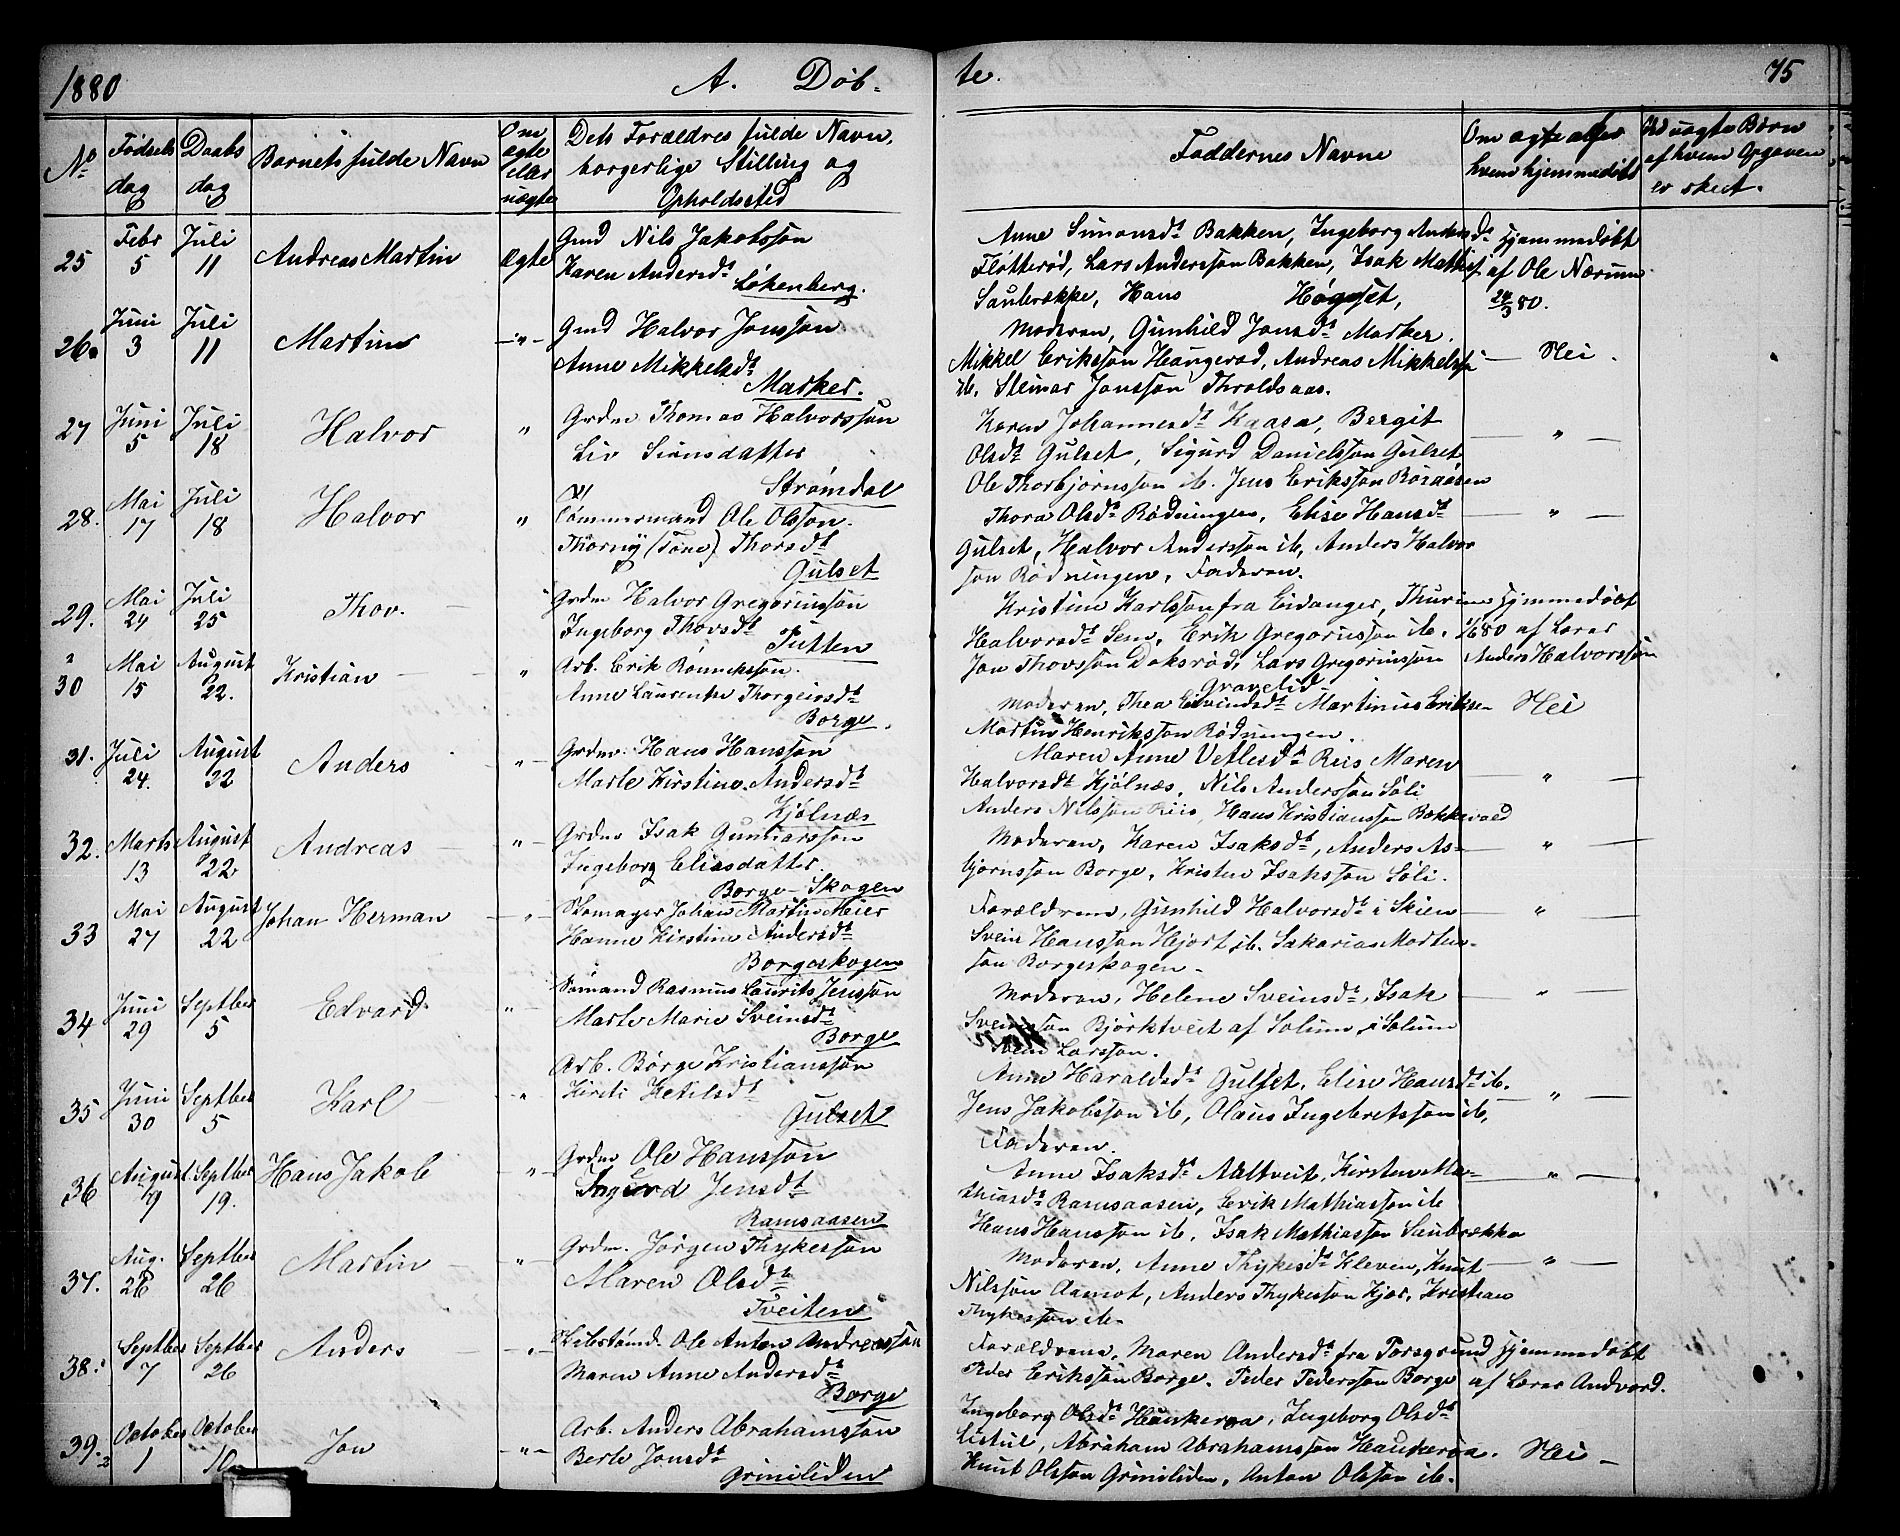 1880 A. Døb- te. 75
No Fødsels dag Daabs dag Barnets fulde Navn Om ægte eller uægte Dets Forældres fulde Navn, borgerlige Stilling og Opholdssted Faddernes Navne Om og af hvem hjemmedøbt Ved uægte Børn af hvem Opgaven er skeet.
25 Febr 5 Juli 11 Andreas Martin Ægte
Gmd Nils Jakobsson
Karen Andersdt
Løkenberg.
Anne Simonsdt Bakken, Ingeborg Andersdt
Fløtterød, Lars Andersson Bakken, Isak Mathisf
Saubrække, Hans Høgset,
Hjemmedøbt
af Ole Nærum
24/3 80.
26 Juni 3 Juli 11 Martin — " —
Gmd Halvor Jonsson
Anne Mikkelsdt
Marker.
Moderen, Gunhild Jonsdt Marker.
Mikkel Eriksson Haugerød, Andreas Mikkelsf
ib, Steinar Jonsson Throldsaas.
— Nei.
27 Juni 5 Juli 18 Halvor "
Grdm Thomas Halvorsson
Liv Simonsdatter
Strømdal
Karen Johannesdt Kaasa, Bergit
Olsdt Gulset, Sigurd Danielsson Gulset
Ole Thorbjørnsson ib. Jens Eriksson Röraasen
— " —
28. Mai 17 Juli 18 Halvor "
Tömmermand Ole Olsson.
Thorny (Tone) Thorsdt
Gulset
Thora Olsdt Rødningen, Elise Hansdt
Gulset, Halvor Andersson ib, Anders Halvor
son Rødningen, Faderen.
— " —
29. Mai 24 Juli 25 Thov. —
Grdm Halvor Gregoriusson
Ingeborg Thovsdt
Tuften
Kristine Karlsson fra Eidanger, Thurine
Halvorsdt Sem, Erik Gregoriusson ib.
Jon Thovsson Doksrød, Lars Gregoriusson
Gravelid
Hjemmedøbt
1/6 80 af Lærer
Anders Halvorsson
30 Mai 15 August 22. Kristian — "
Arb. Erik
Anne Laurentse Thorgeirsdt
Borge.
Moderen, Thea Eivindsdt Martinius Eriksen
Martin Henriksson Rødningen.
Nei
31. Juli 24. August 22 Anders — " —
Grdm. Hans Hansson
Marte Kirstine Andersdt
Kjølnæs
Maren Anne Vetlesdt Riis Maren
Halvorsdt Kjölnæs, Nils Andersson Søli
Anders Nilsson Riis, Hans Kristiansson Bakkevold
— " —
32. Marts 13 August 22 Andreas — " —
Grdm Isak Gunnarsson
Ingeborg Eliasdatter.
Borge-Skogen
Moderen, Karen Isaksdt, Anders As-
bjørnsson Borge, Kristen Isaksson Søli.
— " —
33 Mai 27 August 22 Johan Herman — " —
Skomager Johan Martin Meier
Hanne Kirstine Andersdt
Borgeskogen
Forældrene, Gunhild Halvorsdt i Skien
Svein Hansson Hjort ib. Sakarias Morten-
son Borgeskogen -
— " —
34 Juni 29 Septber 5 Edvard. " —
Sömand Rasmus Laurits Jensson
Marte Marie Sveinsdt
Borge
Moderen, Helene Sveinsdt, Isak
Sveinsson Björktveit af Solum, i Solum
Svein Larsson.
— " —
35 Juni 30 Septber 5 Karl — "
Arb. Börge Kristiansson
Kirsti Ketilsdt
Gulset
Anne Haraldsdt Gulset, Elise Hansdt ib.
Jens Jakobsson ib, Olaus Ingebretsson ib,
Faderen.
— " —
36 August 9 Septber 19. Hans Jakob " —
Grdm Ole Hansson
Jensdt
Ramsaasen
Anne Isaksdt Aaltveit, Kirsten Ma-
thiasdt Ramsaasen, Gerik Mathiasson ib
Hans Hansson ib, Isak Mathiasson Saubrækka
— " —
37. Aug. 26 Septber 26 Martin — " —
Grdm. Jørgen Thykesson
Maren Olsdt
Tveiten
Moderen, Anne Thykesdt Kleven, Knut
Nilsson Aamot, Anders Thykesson Kjær, Kristian
Thykesson ib.
— " —
38. Septber 7 Septber 26 Anders — " —
Skibstömd. Ole Anton Andreasson
Maren Anne Andersdt
Borge
Forældrene, Maren Andersdt fra Porsgrund
Peder Eriksson Borge. Peder Pedersson Borge
Hjemmedøbt
af Lærer Andvord.
39. October 1 October 10 Jon — " —
Arb. Anders Abrahamsson
Berte Jonsdt
GrinilideN
Ingeborg Olsdt Haukeraa, Ingeborg Olsdt
Listul, Abraham Abrahamsson Haukeraa.
Knut Olsson Griniliden, Anton Olsson ib.
Nei —